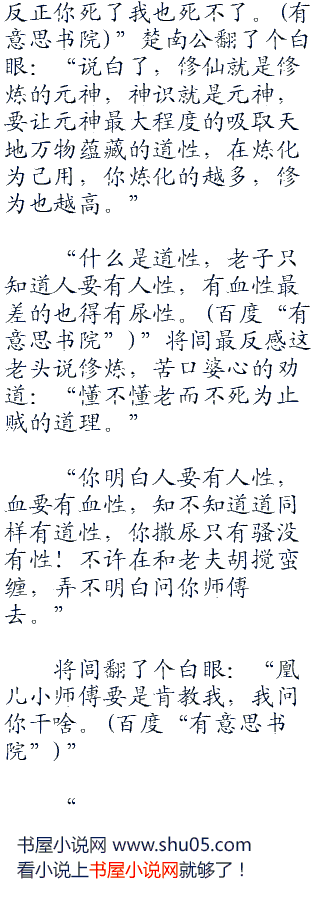 反正你死了我也死不了。(有
意思书院)”楚南公翻了个白
眼：“说白了，修仙就是修
炼的元神，神识就是元神，
要让元神最大程度的吸取天
地万物蕴藏的道性，在炼化
为己用，你炼化的越多，修
为也越高。”
“什么是道性，老子只
知道人要有人性，有血性最
差的也得有尿性。(百度“有
意思书院”)”将闾最反感这
老头说修炼，苦口婆心的劝
道：“懂不懂老而不死为止
贼的道理。”
“你明白人要有人性，
血要有血性，知不知道道同
样有道性，你撒尿只有骚没
有性！不许在和老夫胡搅蛮
缠，弄不明白问你师傅
去。”
将闾翻了个白眼：“凰
儿小师傅要是肯教我，我问
你干啥。(百度“有意思书
院”)”
“
书屋小说网 www.shu05.com
看小说上书屋小说网就够了！